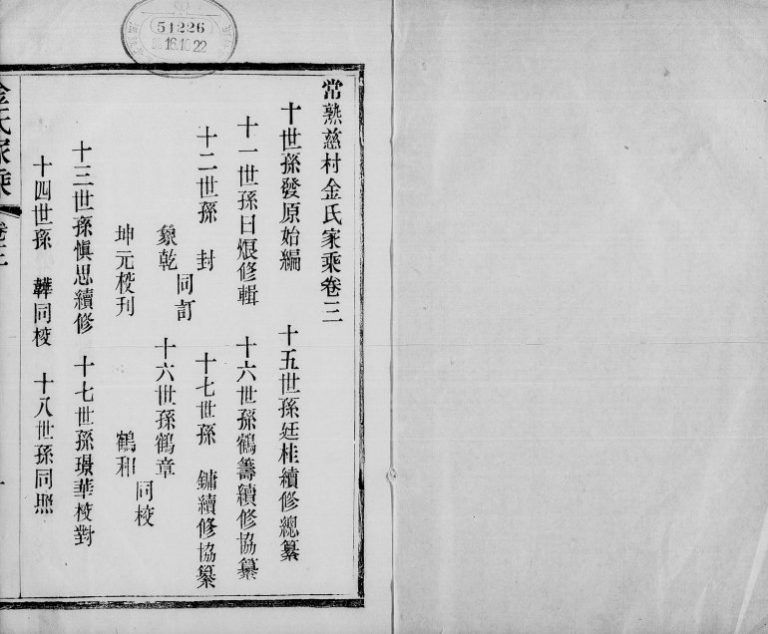 常熟慈村金氏家乘卷三
十世孫發原始編
十五世孫廷桂續修總纂
十一世孫日烺修輯
十六世孫鶴籌續修協纂
十二世孫 封
十七世孫 鏞續修協纂
同訂
象乾
十六世孫鶴章
同校
坤元校刊
鶴和
十三世孫愼思續修
十七世孫璟華校對
十四世孫 韡同校
十八世孫同照
金氏家乘
卷三
一
51226
16.10.22